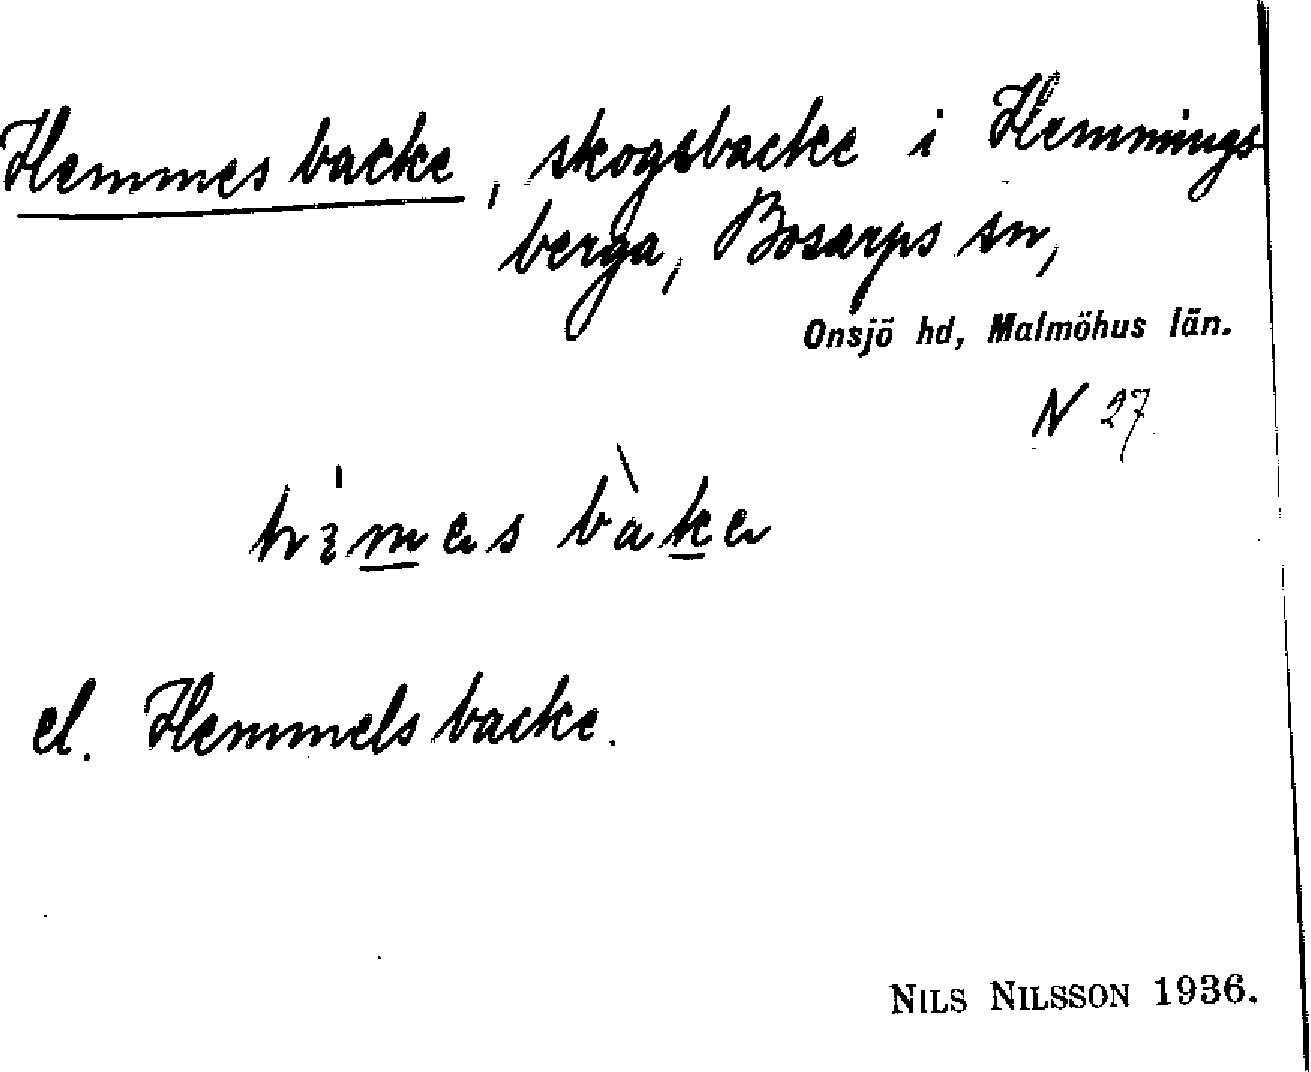 Hemmes backe, skogsbacke i Hemmings
berga, Bosarps sn,
Onsjö hd, Malmöhus län.
N 27
el. Hemmels backe.
NILS NILSSON 1936.